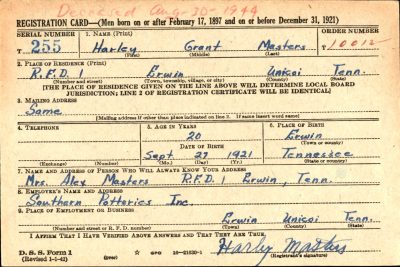 Aug 20-1944
REGISTRATION CARD—(Men born on or after February 17, 1897 and on or before December 31, 1921)
SERIAL NUMBER 1. NAME (Print) ORDER NUMBER
T 255 Harley Grant Masters 10012
(First) (Middle) (Last)
2. PLACE OF RESIDENCE (Print)
R.F.D. 1 Erwin Unicoi Tenn.
(Number and street) (Town, township, village, or city) (County) (State)
[THE PLACE OF RESIDENCE GIVEN ON THE LINE ABOVE WILL DETERMINE LOCAL BOARD
JURISDICTION; LINE 2 OF REGISTRATION CERTIFICATE WILL BE IDENTICAL]
3. MAILING ADDRESS
Same
[Mailing address if other than place indicated on line 2. If same insert word same]
4. TELEPHONE 5. AGE IN YEARS 6. PLACE OF BIRTH
20 Erwin
DATE OF BIRTH (Town or county)
Sept 27 1921 Tennessee
(Exchange) (Number) (Mo.) (Day) (Yr.) (State or country)
7. NAME AND ADDRESS OF PERSON WHO WILL ALWAYS KNOW YOUR ADDRESS
Mrs. Alex Masters R.F.D. 1 Erwin, Tenn.
8. EMPLOYER'S NAME AND ADDRESS
Southern Potteries Inc.
9. PLACE OF EMPLOYMENT OR BUSINESS
Erwin Unicoi Tenn.
(Number and street or R. F. D. number) (Town) (County) (State)
I AFFIRM THAT I HAVE VERIFIED ABOVE ANSWERS AND THAT THEY ARE TRUE.
D. S. S. Form 1
(Revised 1-1-42) (over) GPO 16-21630-1 Harley Masters
(Registrant's signature)